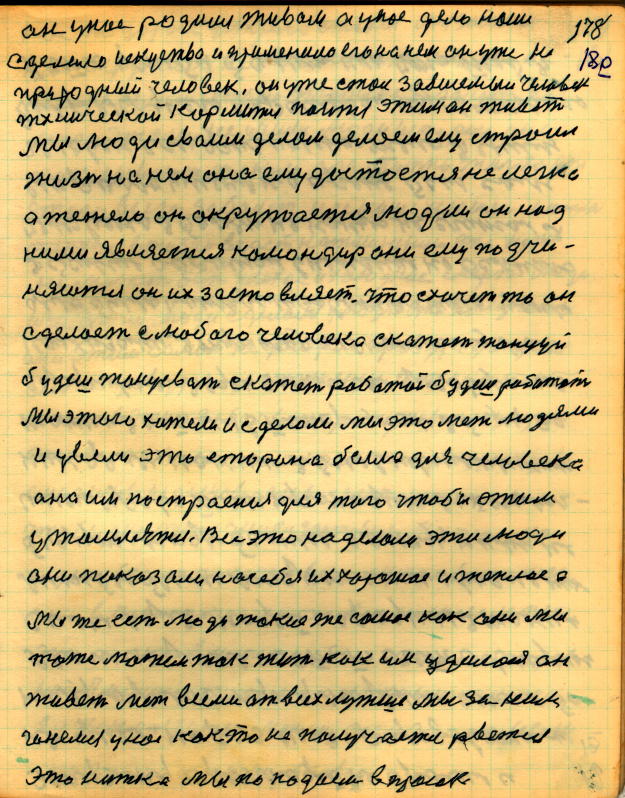 он у нас родился живой а у нас дело наши 178
сделало искуство и применило его на нем он уже не 18
природный человек, он уже стал зависемый человек
технической кормится почти этим он живет
мы люди своим делом делаем ему строим
жизнь на нем она ему достоется не легко
а тежело он окружается людми он над
ними является командир они ему подчи-
няются он их заставляет. что схочет то он
сделает с любого человека скажет танцуй
будеш танцеват скажет работай будеш работать
мы этого хотели и сделали мы это меж людями
и увели это сторона была для человека
она им построеная для того чтоби этим
утомлятся. Все это наделали эти люди
они показали на себя их хорошае и теплае а
мы же ест люди такие же само как они мы
тоже можем так жит как им удалося он
живет меж всеми от всех лутше мы за ним
гонемся у нас как то не получается рвется
это нитка мы попадаем в просак